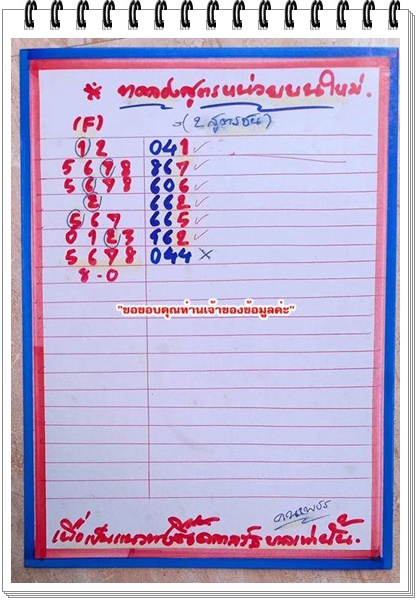 * ทดลองสูตรหน่วยบนใหม่.
(F) =(2 สูตรชน)
1 2 041 ✓
5 6 7 8 867 ✓
5 6 7 8 606 ✓
2 662 ✓
5 6 7 665 ✓
0 1 2 3 562 ✓
5 6 7 8 044 ×
8 - 0
"ขอขอบคุณท่านเจ้าของข้อมูลค่ะ"
เพื่อเป็นแนวทาง เท่านั้น.